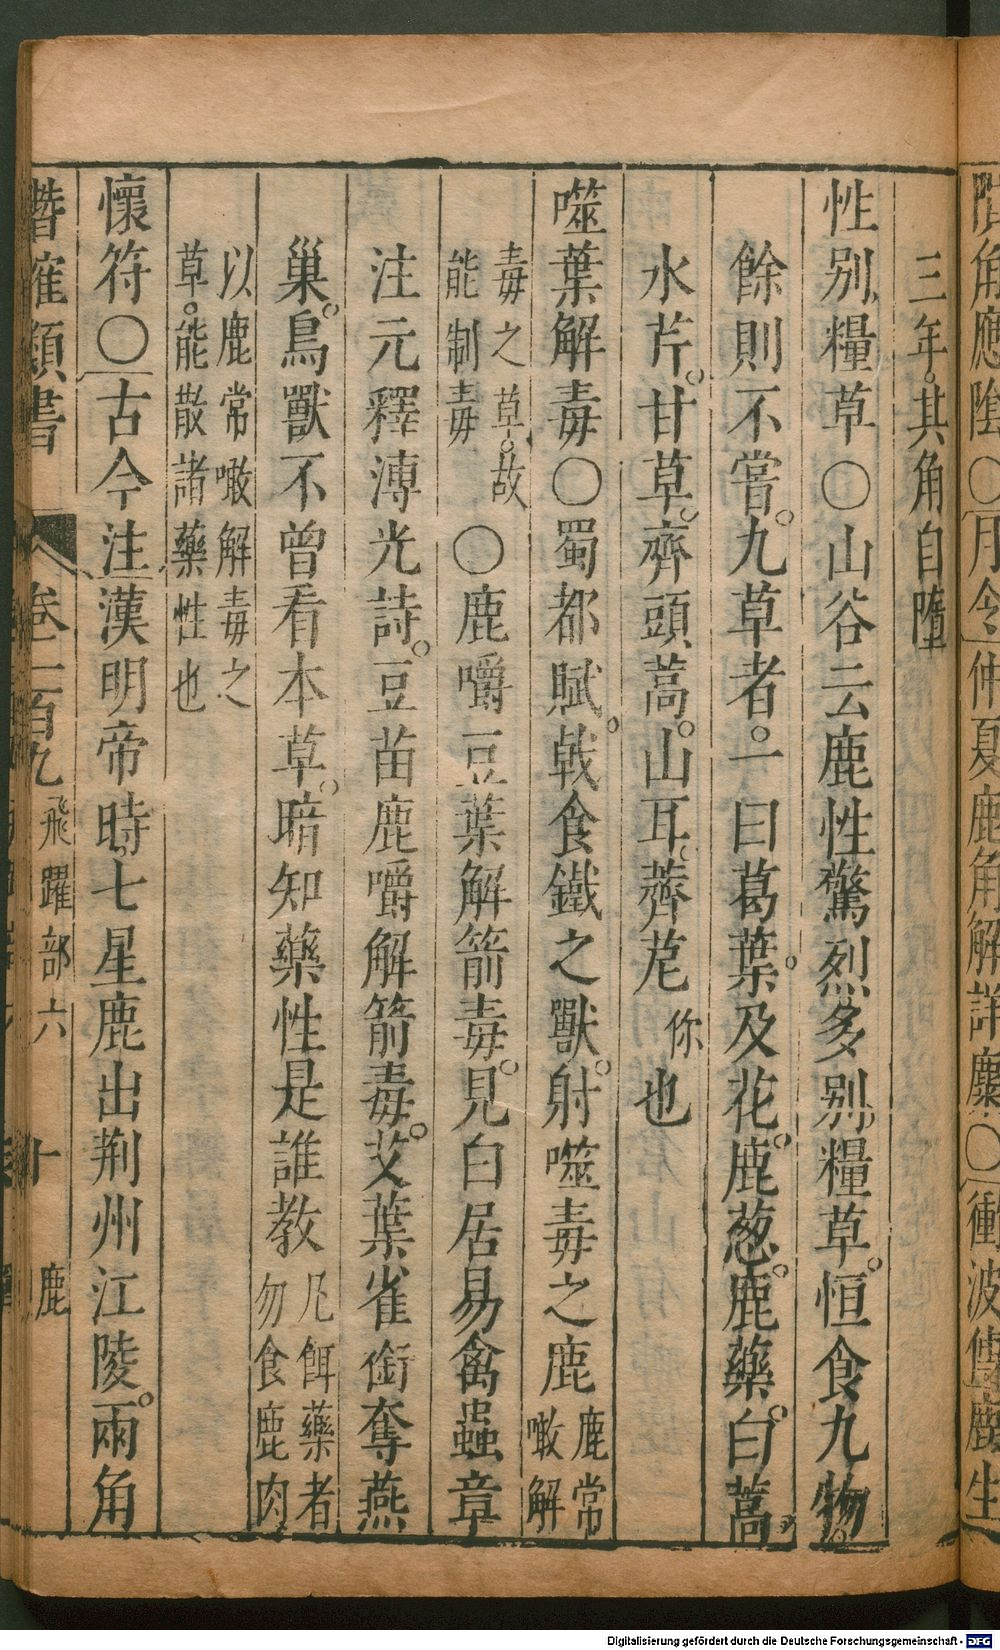 三年。其角自墮
性別糧草〇山谷云鹿性驚烈多別糧草。恒食九物。
餘則不嘗。九草者。一曰葛葉。及花。鹿葱。鹿藥。白蒿。
水芹。甘草。齊頭蒿。山耳。薺苨你也
噬葉解毒〇蜀都賦。戟食鐵之獸。射噬毒之鹿鹿常噉解
毒之草。故能制毒〇鹿嚼豆葉解箭毒。見白居易禽蟲章
注元釋溥光詩。豆苗鹿嚼解箭毒。艾葉雀銜奪燕
巢。鳥獸不曾看本草。暗知藥性是誰教凡餌藥者勿食鹿肉
以鹿常噉解毒之草。能散諸藥性也
懷符〇古今注漢明帝時七星鹿出荆州江陵。兩角
潛確類書 卷一百九 飛躍部六 十 鹿
〇月令仲夏鹿角解詳麋〇衝波傳鹿生
Digitalisierung gefördert durch die Deutsche Forschungsgemeinschaft - DFG